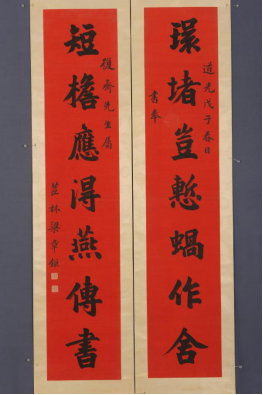 環堵豈慙蝸作舍
道光戊子春日
書奉
短檐應得燕傳書
復齋先生屬
茝林梁章鉅